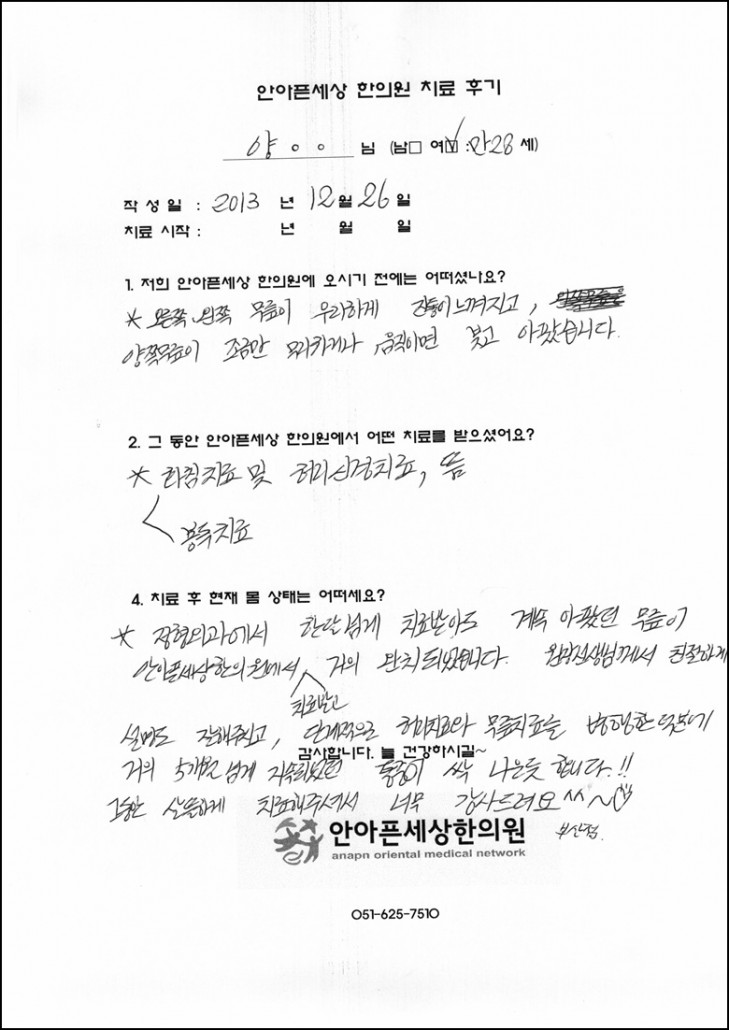 안아픈세상 한의원 치료 후기
양 ○ ○ 님 (남□ 여☑ :만28 세)
작성일 : 2013 년 12월 26일
치료 시작 : 년 월 일
1. 저희 안아픈세상 한의원에 오시기 전에는 어떠셨나요?
* 오른쪽 왼쪽 무릎이 우리하게 진통이 느껴지고,
양쪽무릎이 조금만 무리하거나 움직이면 붓고 아팠습니다.
2. 그 동안 안아픈세상 한의원에서 어떤 치료를 받으셨어요?
* 화침치료 및 허리신경치료, 뜸
봉독치료
4. 치료 후 현재 몸 상태는 어떠세요?
* 정형외과에서 한달넘게 치료받아도 계속 아팠던 무릎이
안아픈세상한의원에서 치료받고 거의 완치되었습니다. 원장선생님께서 친절하게
설명도 잘해주시고, 단계적으로 허리치료와 무릎치료를 병행한 덕분에
감사합니다. 늘 건강하시길~
거의 5개월 넘게 지속되었던 통증이 싹 나은듯 합니다.!!
그동안 살뜰하게 치료해주셔서 너무 감사드려요^^~
안아픈세상한의원 부산점.
anapn oriental medical network
051-625-7510